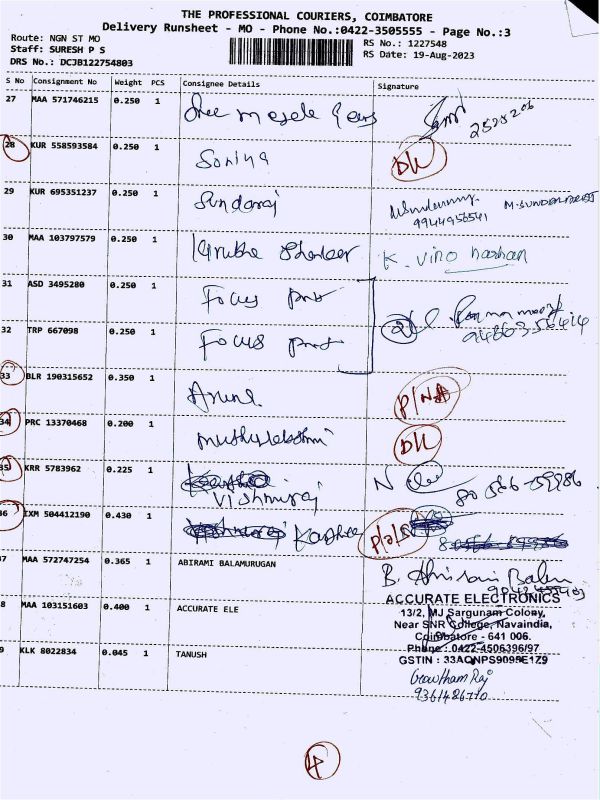 THE PROFESSIONAL COURIERS, COIMBATORE
Delivery Runsheet - MO - Phone No.:0422-3505555 - Page No.:3
Route: NGN ST MO
Staff: SURESH P S
DRS No.: DCJB122754803
RS No.: 1227548
RS Date: 19-Aug-2023
S No Consignment No Weight PCS Consignee Details Signature
27 MAA 571746215 0.250 1
2525206
28 KUR 558593584 0.250 1 Soniya DK
29 KUR 695351237 0.250 1 Sundaraj
9944956541
30 MAA 103797579 0.250 1 K. Vino
31 ASD 3495280 0.250 1 Focus
32 TRP 667098 0.250 1 Focus
33 BLR 190315652 0.350 1 Aruna P/NA
34 PRC 13370468 0.200 1 DK
35 KRR 5783962 0.225 1 Vishnuraj
36 IXM 504412190 0.430 1
7 MAA 572747254 0.365 1 ABIRAMI BALAMURUGAN
B. Abirami Balu
8 MAA 103151603 0.400 1 ACCURATE ELE
ACCURATE ELECTRONICS
13/2, MJ Sargunam Colony,
Near SNR College, Navaindia,
Coimbatore - 641 006.
Phone : 0422-4506396/97
GSTIN : 33AQNPS9095E1Z9
9 KLK 8022834 0.045 1 TANUSH
Gowtham Raj
9361486770
4